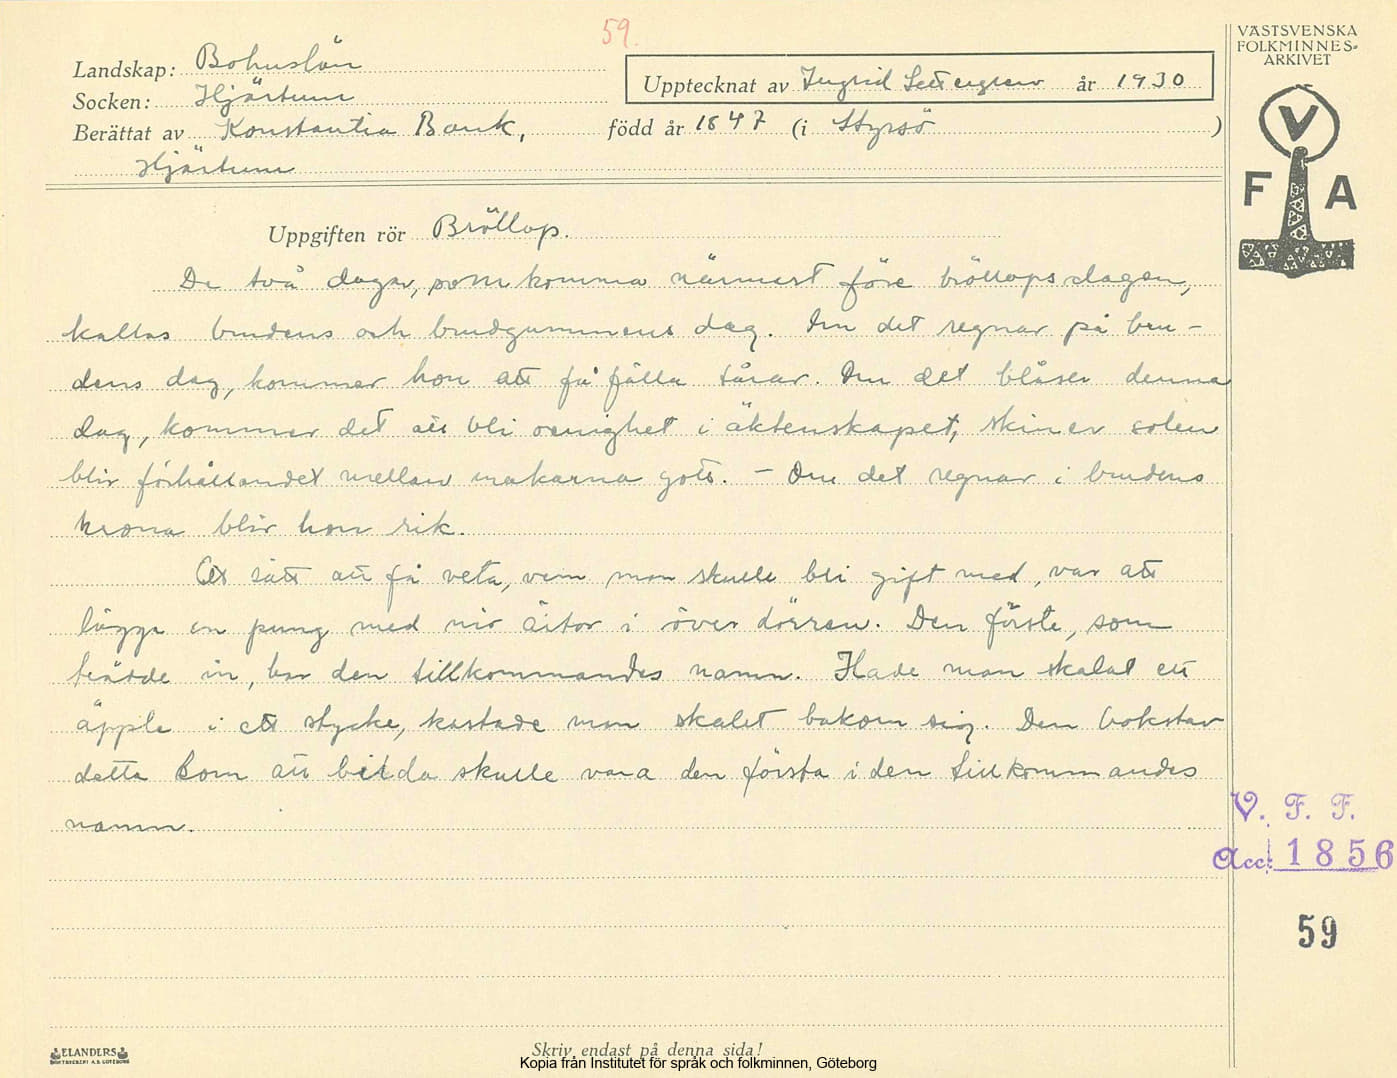 59.
VÄSTSVENSKA
FOLKMINNES-
ARKIVET
Landskap: Bohuslän
Upptecknat av Ingrid år 1930
Socken: Hjärtum
Berättat av Konstantia Bank, född år 1847 (i Styrsö )
Hjärtum
V
F A
Uppgiften rör Bröllop.
De två dagar, som komma närmast före bröllopsdagen,
kallas brudens och brudgummens dag. Om det regnar på bru-
dens dag, kommer hon att få fälla tårar. Om det blåser denna
dag, kommer det att bli oenighet i äktenskapet, skiner solen
blir förhållandet mellan makarna gott. – Om det regnar i brudens
krona blir hon rik.
Ett sätt att få veta, vem man skulle bli gift med, var att
lägga en pung med nio ärtor i över dörren. Den förste, som
trädde in, bar den tillkommandes namn. Hade man skalat ett
äpple i ett stycke, kastade man skalet bakom sig. Den bokstav
detta kom att bilda skulle vara den första i den tillkommandes
namn.
V. F. F.
Acc: 1856
59
ELANDERS
BOKTRYCKERI A.B. GÖTEBORG
Skriv endast på denna sida!
Kopia från Institutet för språk och folkminnen, Göteborg